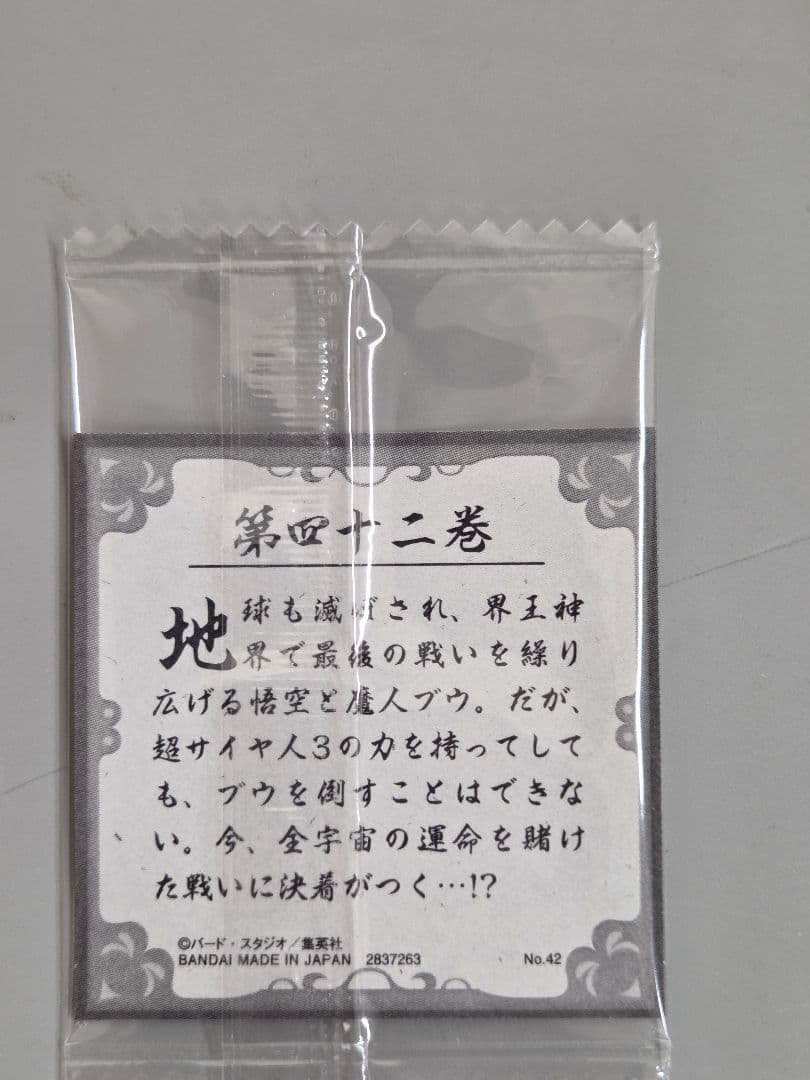 第四十二巻
地球も滅ぼされ、界王神
界で最後の戦いを繰り
広げる悟空と魔人ブウ。だが、
超サイヤ人3の力を持ってして
も、ブウを倒すことはできな
い。今、全宇宙の運命を賭け
た戦いに決着がつく…!?
©バード・スタジオ/集英社
BANDAI MADE IN JAPAN 2837263 No.42